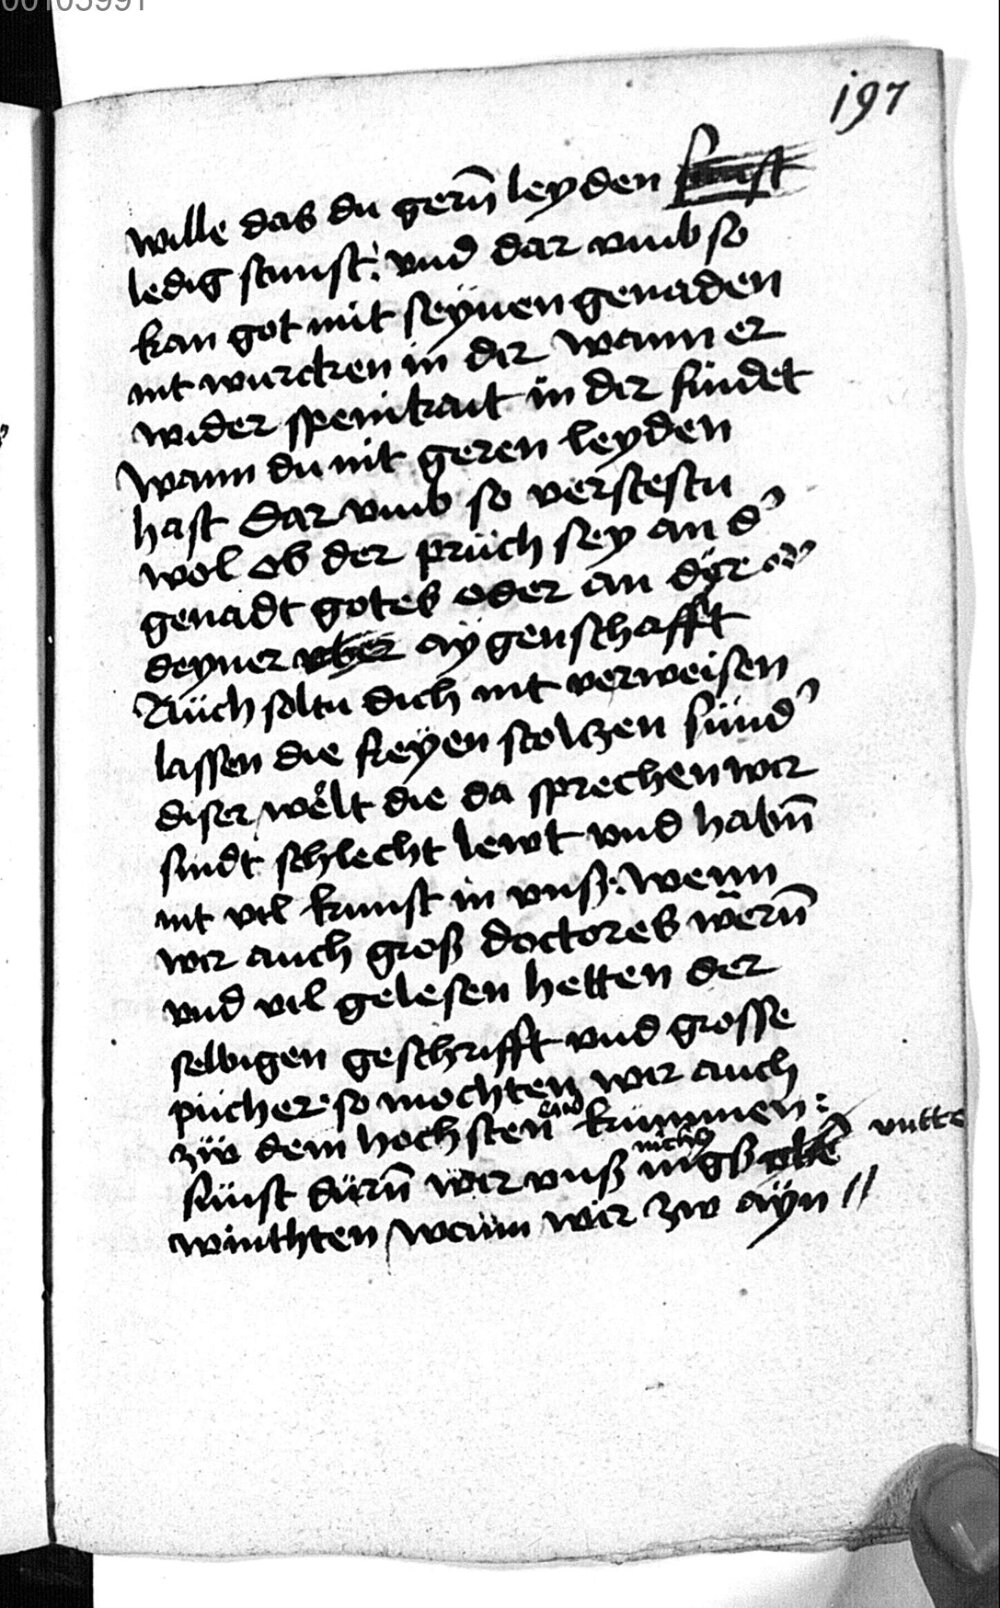 00103991
197
wille das du gern̄ leyden
ledig stunst: vnd dar vmb so
kan got mit seynen genaden
nit wurcken in dir wann er
wider spenikait in dir findet
wann du nit geren leyden
hast dar vmb so verstestu
wol ob der pruch sey an d'
genadt gotes oder an dyr od'
deyner aygenschafft
Auch soltu dich nit verweisen
lassen die freyen stolczen sund'
diser welt die da sprechen wir
sindt schlecht lewt vnd habn̄
nit vil kunst in vnß. wenn
wir auch groß doctores wern̄
vnd vil gelesen hetten der
selbigen geschrifft vnd grosse
pucher. so mochten wir auch
zw dem hochsten end kummen:
sunst durn̄ wir vnß nichs
vntte
winthten wann wir zw ayn //